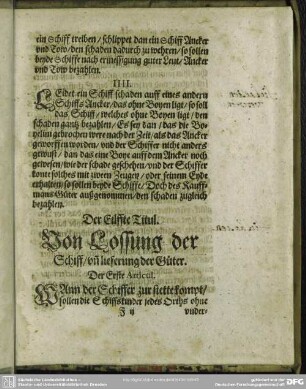 ein Schiff treiben / schlippet dan ein Schiff Ancker
vnd Tow / den schaden dadurch zu wehren / so sollen
beyde Schiffe nach ermessigung guter Leut / Ancker
vnd Tow bezahlen.
IIII.
LEidet ein Schiff schaden auff eines andern
Schiffs Ancker / das ohne Boyen ligt / so soll
das Schiff / welches ohne Boyen ligt / den
schaden gantz bezahlen / Es sey dan / das die Bo-
gebrochen were nach der Zeit / als das Ancker
geworffen worden / vnd der Schiffer nicht anders
gewust / dan das eine Boye auff dem Ancker noch
gewesen / wie der schade geschehen / vnd der Schiffer
konte solches mit zween Zeugen / oder seinem Eyde
erhalten / so sollen beyde Schiffe / Doch des Kauff-
mans Güter außgenommen / den schaden zugleich
bezahlen.
Der Eilffte Titul.
Von Lossung der
Schiff / vñ lieferung der Güter.
Der Erste Articul.
WAnn der Schiffer zur stette kompt /
sollen die Schiffskinder jedes Orths ohne
J ij
vnder-